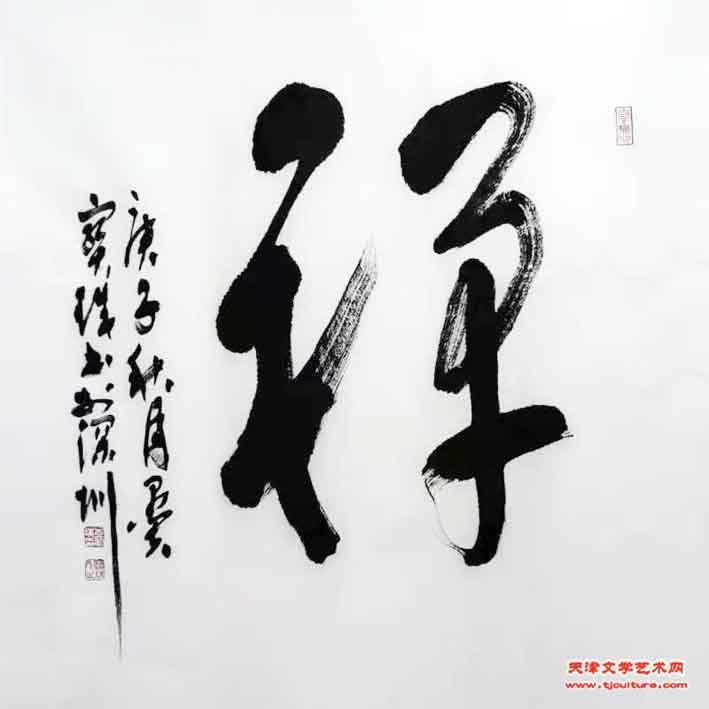 禅
庚子秋月
寶珠书於深圳
天津文学艺术网
www.tjculture.com